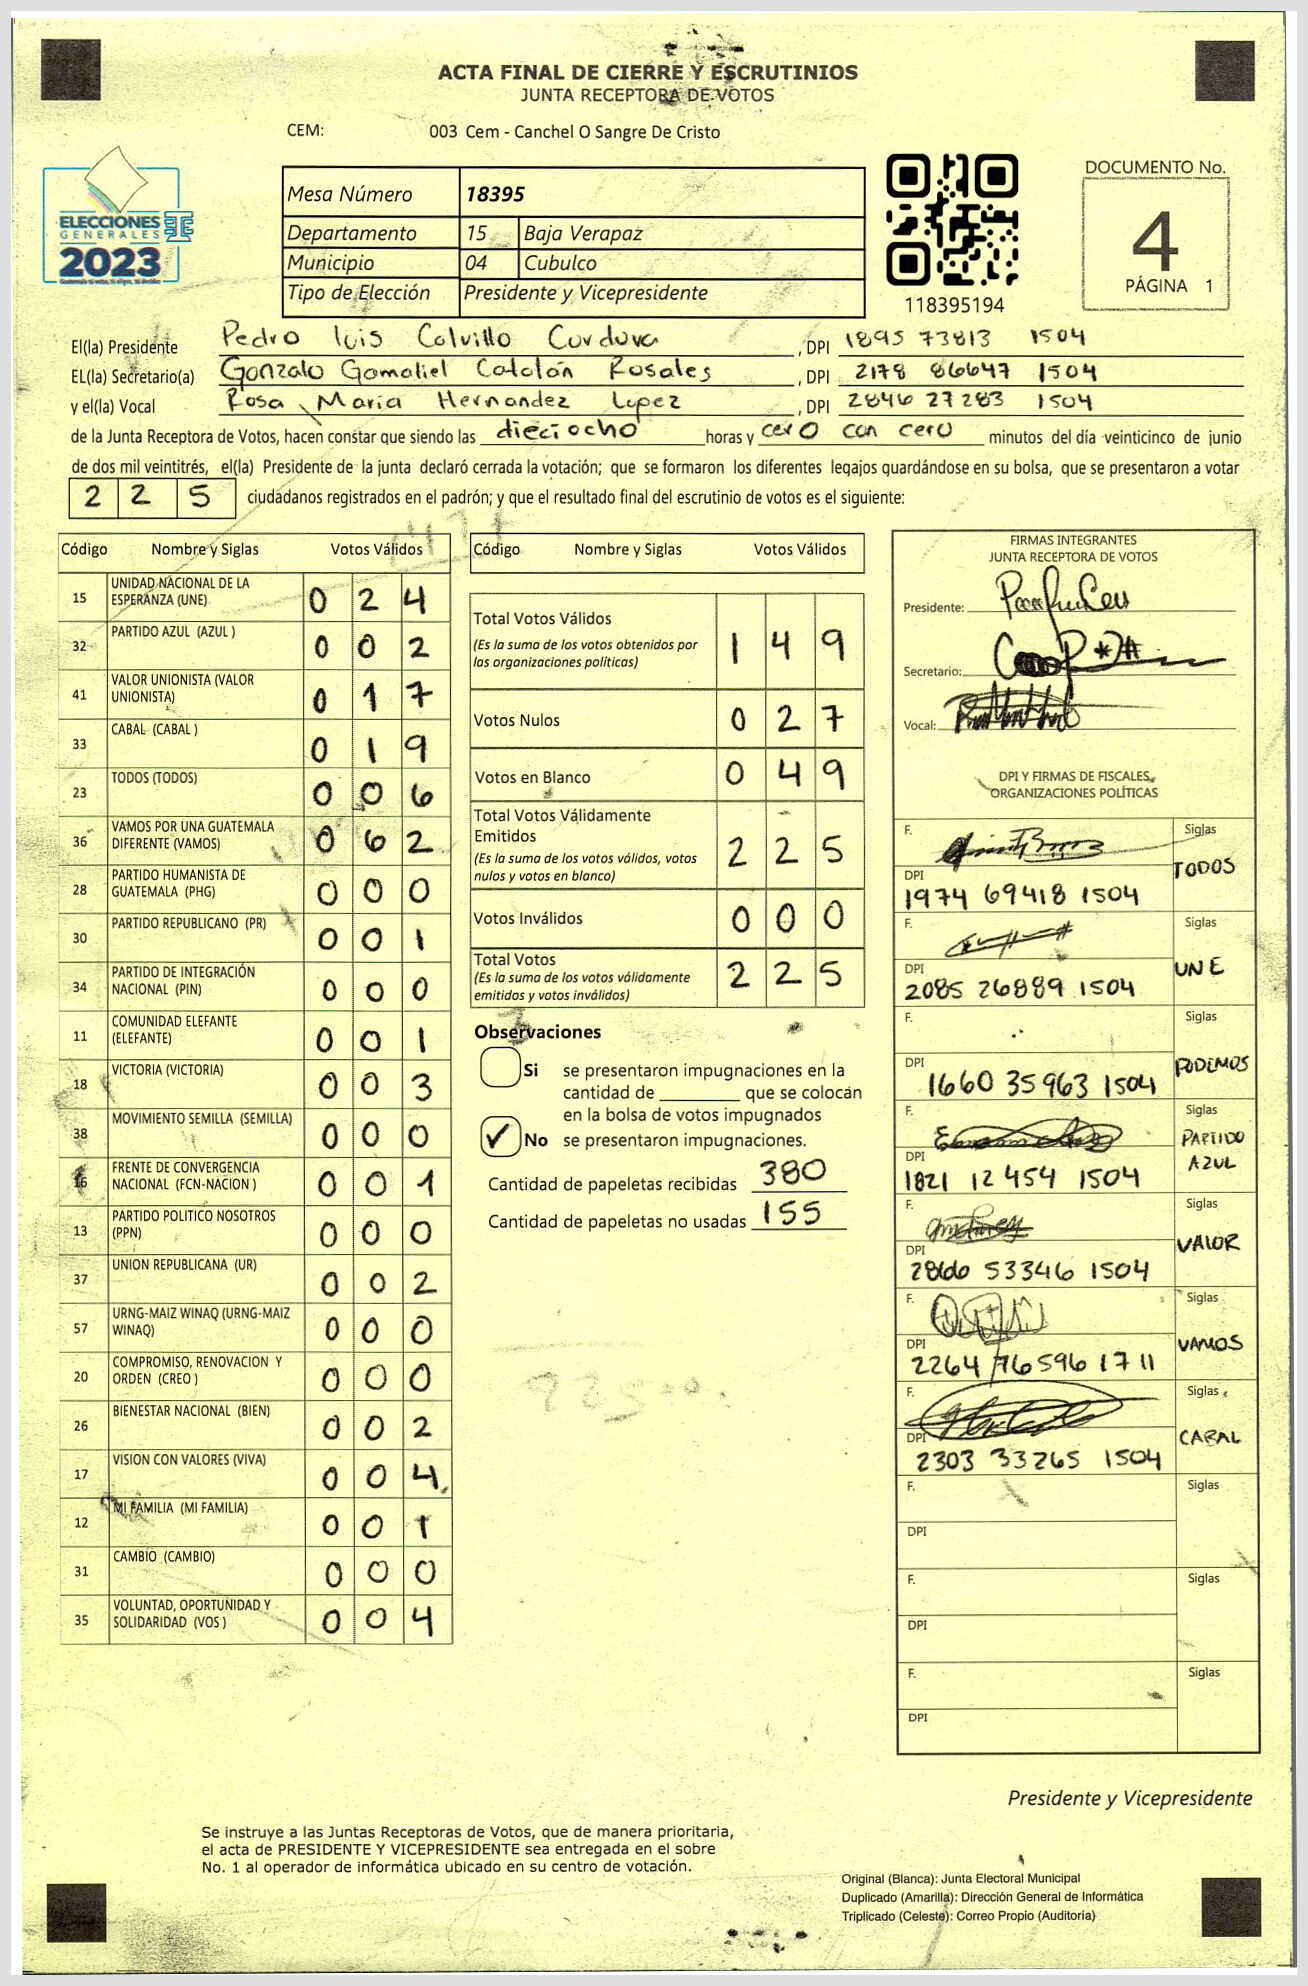 ACTA FINAL DE CIERRE Y ESCRUTINIOS
JUNTA RECEPTORA DE VOTOS
CEM: 003 Cem - Canchel O Sangre De Cristo
ELECCIONES
GENERALES
2023
Mesa Número 18395
Departamento 15 Baja Verapaz
Municipio 04 Cubulco
Tipo de Elección Presidente y Vicepresidente
118395194
DOCUMENTO No.
4
PÁGINA 1
El(la) Presidente Pedro Luis Calvillo Cordova, DPI 1895 73813 1504
EL(la) Secretario(a) Gonzalo Gamaliel Catalán Rosales, DPI 2178 86647 1504
y el(la) Vocal Rosa Maria Hernandez Lopez, DPI 2846 27283 1504
de la Junta Receptora de Votos, hacen constar que siendo las dieciocho horas y cero con cero minutos del día veinticinco de junio
de dos mil veintitrés, el(la) Presidente de la junta declaró cerrada la votación; que se formaron los diferentes legajos guardándose en su bolsa, que se presentaron a votar
2 2 5 ciudadanos registrados en el padrón; y que el resultado final del escrutinio de votos es el siguiente:
Código Nombre y Siglas Votos Válidos
15 UNIDAD NACIONAL DE LA ESPERANZA (UNE) 0 2 4
32 PARTIDO AZUL (AZUL ) 0 0 2
41 VALOR UNIONISTA (VALOR UNIONISTA) 0 1 7
33 CABAL (CABAL ) 0 1 9
23 TODOS (TODOS) 0 0 6
36 VAMOS POR UNA GUATEMALA DIFERENTE (VAMOS) 0 6 2
28 PARTIDO HUMANISTA DE GUATEMALA (PHG) 0 0 0
30 PARTIDO REPUBLICANO (PR) 0 0 1
34 PARTIDO DE INTEGRACIÓN NACIONAL (PIN) 0 0 0
11 COMUNIDAD ELEFANTE (ELEFANTE) 0 0 1
18 VICTORIA (VICTORIA) 0 0 3
38 MOVIMIENTO SEMILLA (SEMILLA) 0 0 0
16 FRENTE DE CONVERGENCIA NACIONAL (FCN-NACION ) 0 0 1
13 PARTIDO POLITICO NOSOTROS (PPN) 0 0 0
37 UNION REPUBLICANA (UR) 0 0 2
57 URNG-MAIZ WINAQ (URNG-MAIZ WINAQ) 0 0 0
20 COMPROMISO, RENOVACION Y ORDEN (CREO ) 0 0 0
26 BIENESTAR NACIONAL (BIEN) 0 0 2
17 VISION CON VALORES (VIVA) 0 0 4
12 MI FAMILIA (MI FAMILIA) 0 0 1
31 CAMBIO (CAMBIO) 0 0 0
35 VOLUNTAD, OPORTUNIDAD Y SOLIDARIDAD (VOS ) 0 0 4
Código Nombre y Siglas Votos Válidos
Total Votos Válidos 1 4 9
(Es la suma de los votos obtenidos por
las organizaciones políticas)
Votos Nulos 0 2 7
Votos en Blanco 0 4 9
Total Votos Válidamente
Emitidos 2 2 5
(Es la suma de los votos válidos, votos
nulos y votos en blanco)
Votos Inválidos 0 0 0
Total Votos 2 2 5
(Es la suma de los votos válidamente
emitidos y votos inválidos)
Observaciones
Si se presentaron impugnaciones en la
cantidad de ________ que se colocan
en la bolsa de votos impugnados
✓ No se presentaron impugnaciones.
Cantidad de papeletas recibidas 380
Cantidad de papeletas no usadas 155
FIRMAS INTEGRANTES
JUNTA RECEPTORA DE VOTOS
Presidente:
Secretario:
Vocal:
DPI Y FIRMAS DE FISCALES
ORGANIZACIONES POLÍTICAS
F. Siglas
TODOS
DPI
1974 69418 1504
F. Siglas
UNE
DPI
2085 26889 1504
F. Siglas
PODEMOS
DPI
1660 35963 1504
F. Siglas
PARTIDO
AZUL
DPI
1821 12 454 1504
F. Siglas
VALOR
DPI
2866 53346 1504
F. Siglas
VAMOS
DPI
2264 76596 1711
F. Siglas
CABAL
DPI
2303 33265 1504
F. Siglas
DPI
F. Siglas
DPI
F. Siglas
DPI
Presidente y Vicepresidente
Se instruye a las Juntas Receptoras de Votos, que de manera prioritaria,
el acta de PRESIDENTE Y VICEPRESIDENTE sea entregada en el sobre
No. 1 al operador de informática ubicado en su centro de votación.
Original (Blanca): Junta Electoral Municipal
Duplicado (Amarilla): Dirección General de Informática
Triplicado (Celeste): Correo Propio (Auditoría)